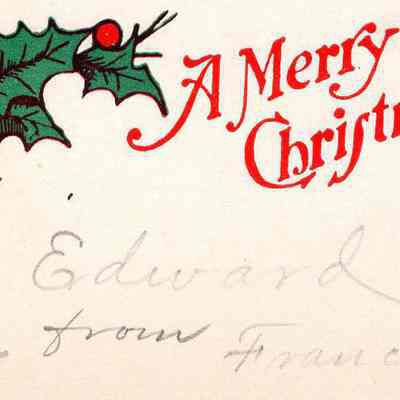 A Merry
Christm
Edward
from Franc